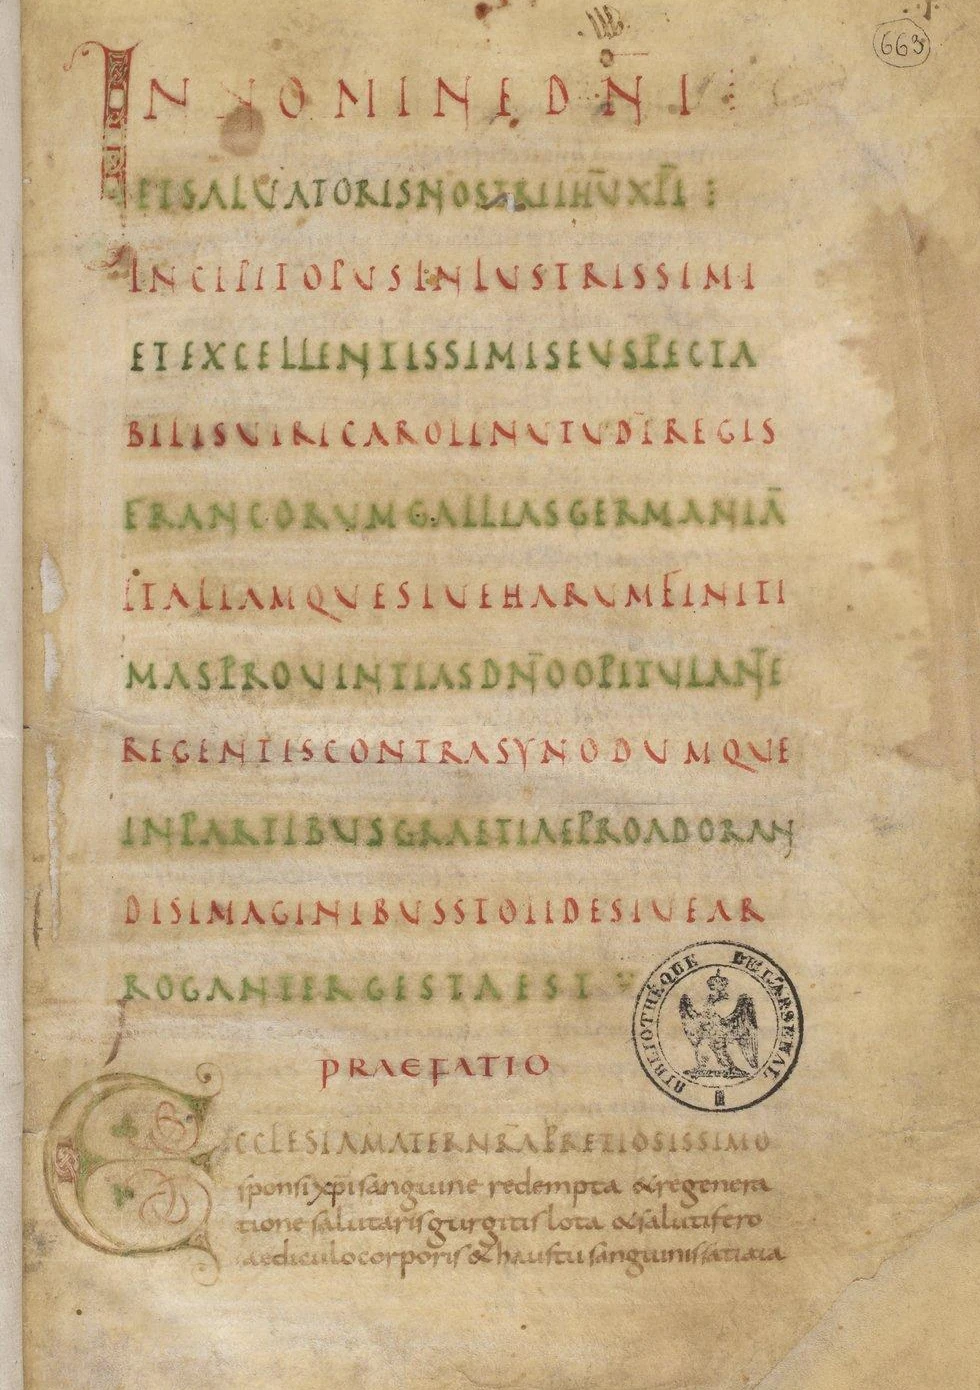 663
IN NOMINE DÑI
ET SALVATORIS NOSTRI IHŪ XPĪ
INCIPIT OPUS INLUSTRISSIMI
ET EXCELLENTISSIMI SEU SPECTA
BILIS VIRI CAROLI NUTU DĪ REGIS
FRANCORUM GALLIAS GERMANIĀ
ITALIAMQUE SIVE HARUM FINITI
MAS PROVINTIAS DÑO OPITULANTE
REGENTIS CONTRA SYNODUM QUE
IN PARTIBUS GRAETIAE PRO ADORAN
DIS IMAGINIBUS STOLIDE SIVE AR
ROGANTER GESTA EST
BIBLIOTHÈQUE DE L'ARSENAL
PRAEFATIO
ECCLESIA MATER NR̄A PRETIOSISSIMO
sponsi xp̄i sanguine redempta & regenera
tione salutaris gurgitis lota & salutifero
aediculo corporis & haustu sanguinis satiata